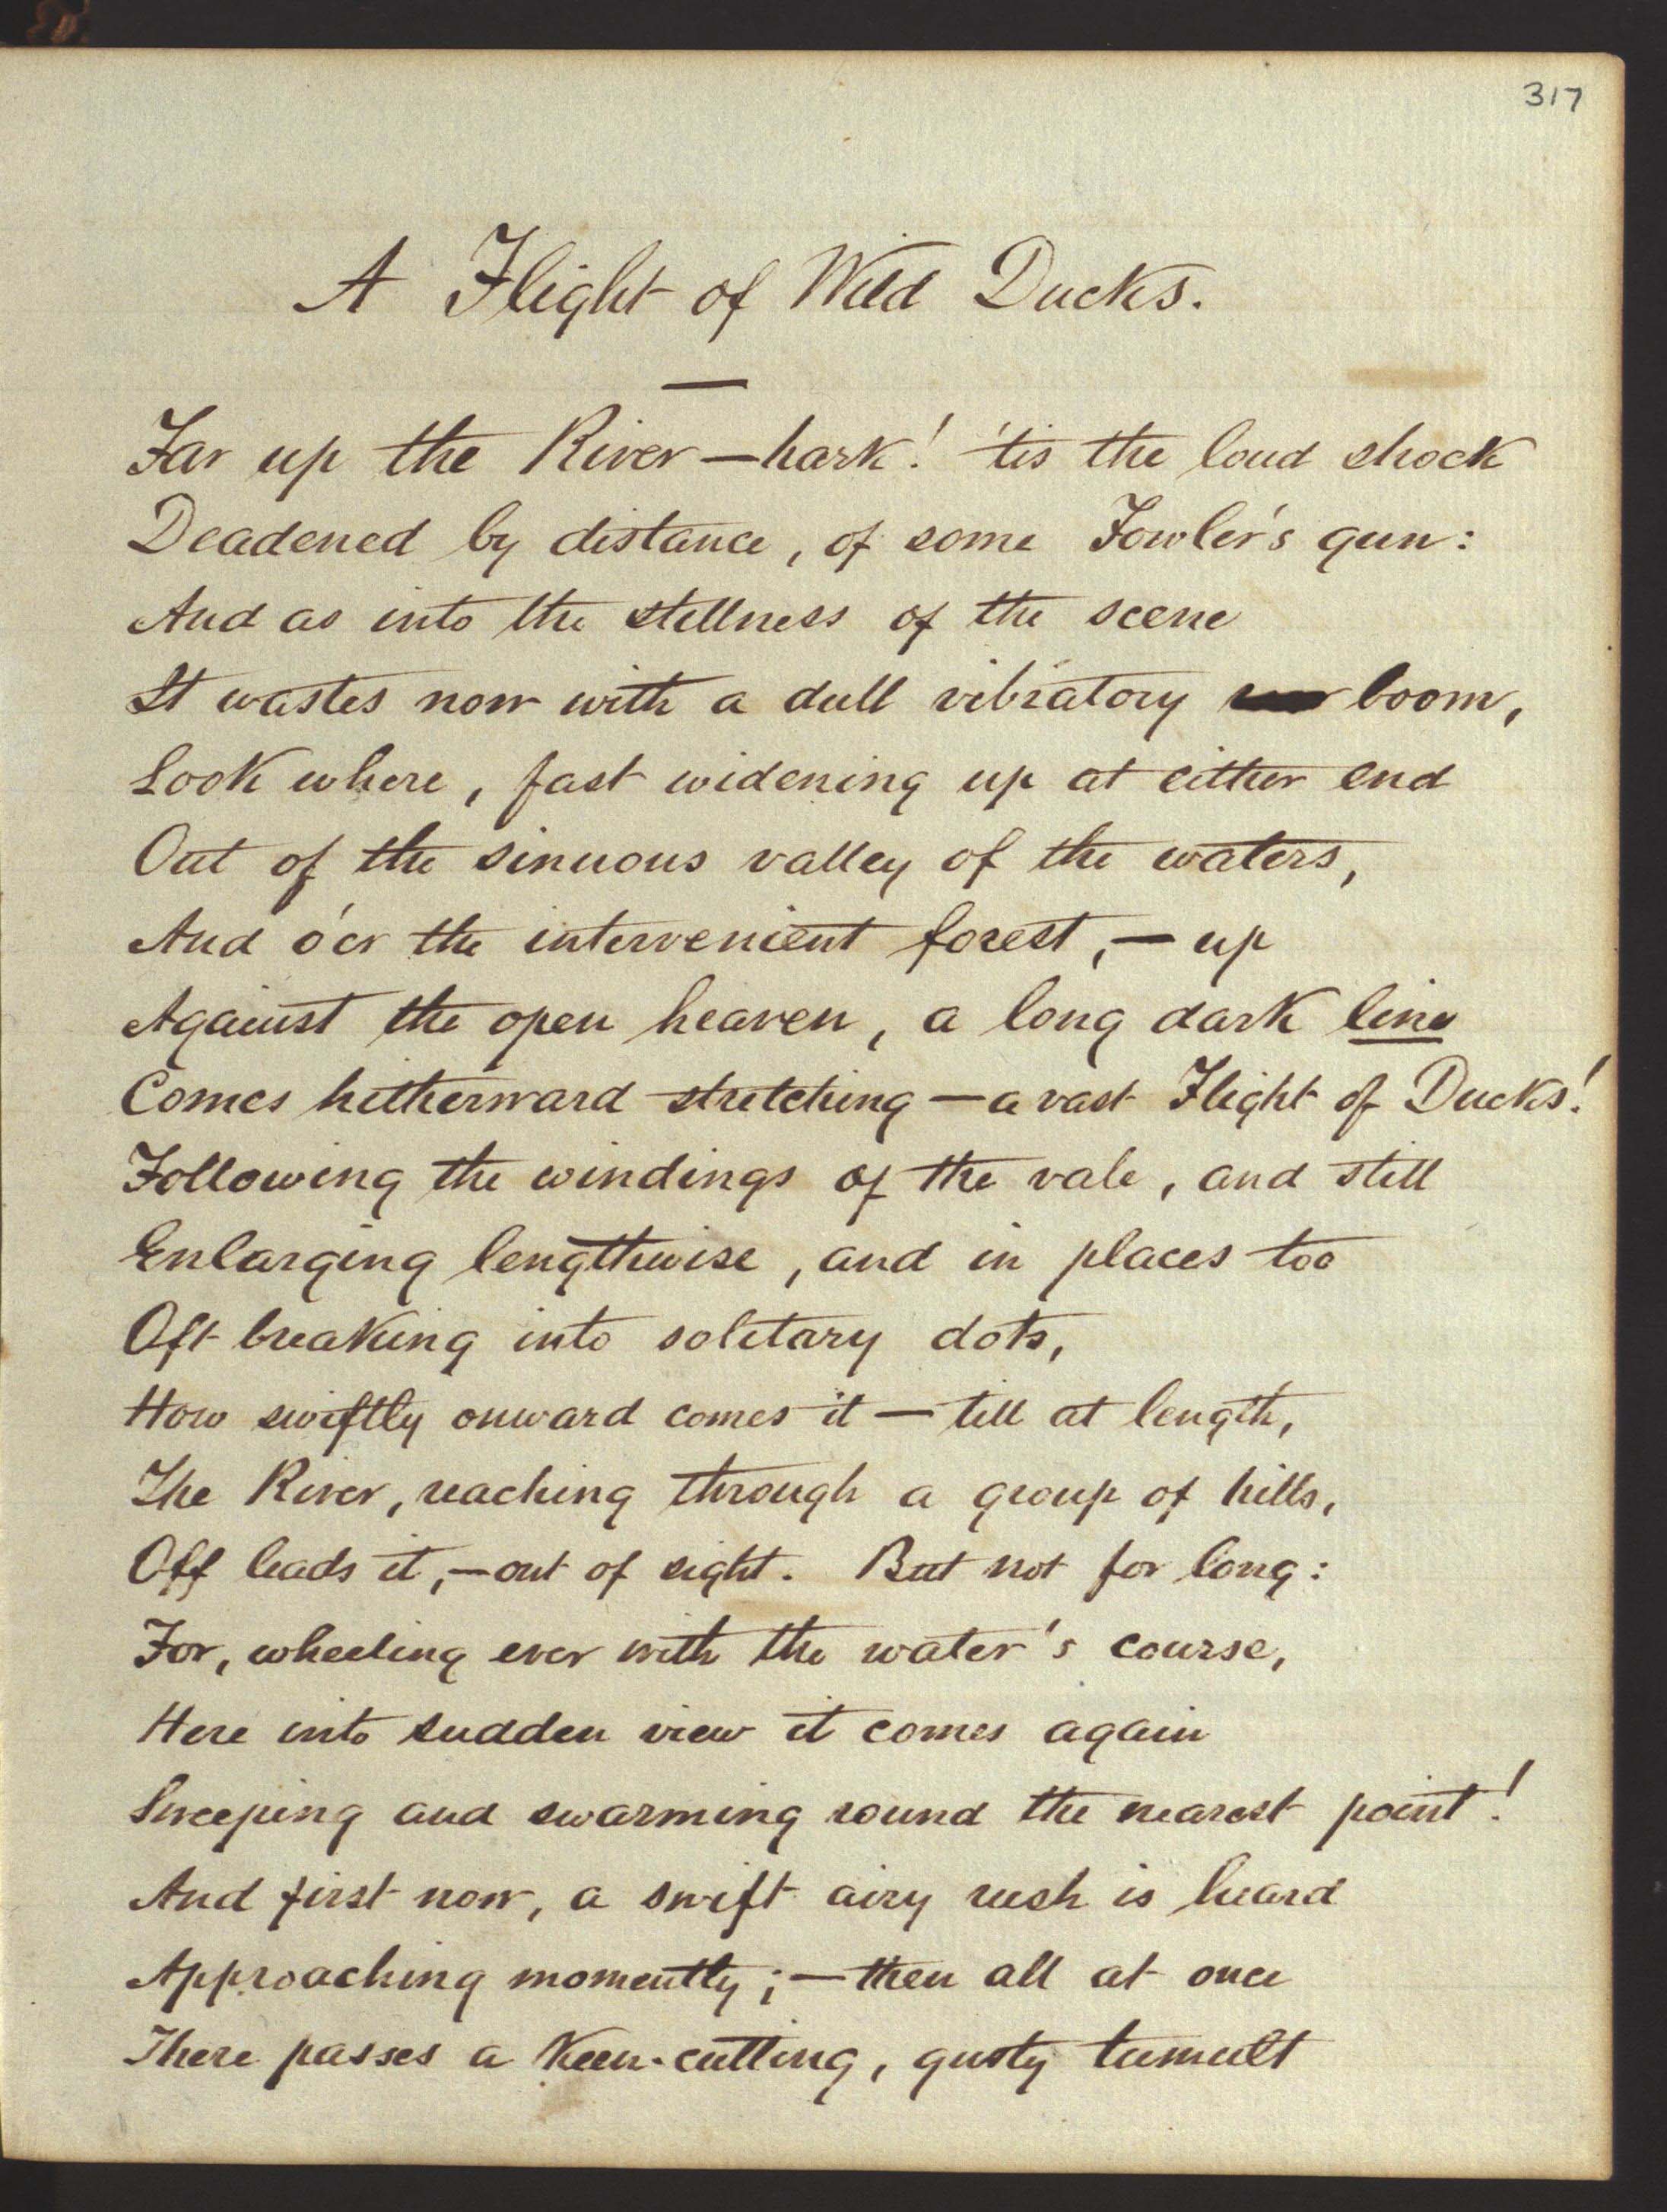 317
A Flight of Wild Ducks.
Far up the River — hark! 'tis the loud shock
Deadened by distance, of some Fowler's gun:
And as into the stillness of the scene
It wastes now with a dull vibratory boom,
Look where, fast widening up at either end
Out of the sinuous valley of the waters,
And o'er the intervenient forest, — up
Against the open heaven, a long dark line
Comes hitherward stretching — a vast Flight of Ducks!
Following the windings of the vale, and still
Enlarging lengthwise, and in places too
Oft breaking into solitary dots,
How swiftly onward comes it — till at length,
The River, reaching through a group of hills,
Off leads it, — out of sight. But not for long:
For, wheeling ever with the water's course,
Here into sudden view it comes again
Sweeping and swarming round the nearest point!
And first now, a swift airy rush is heard
Approaching momently; — then all at once
There passes a keen-cutting, gusty tumult